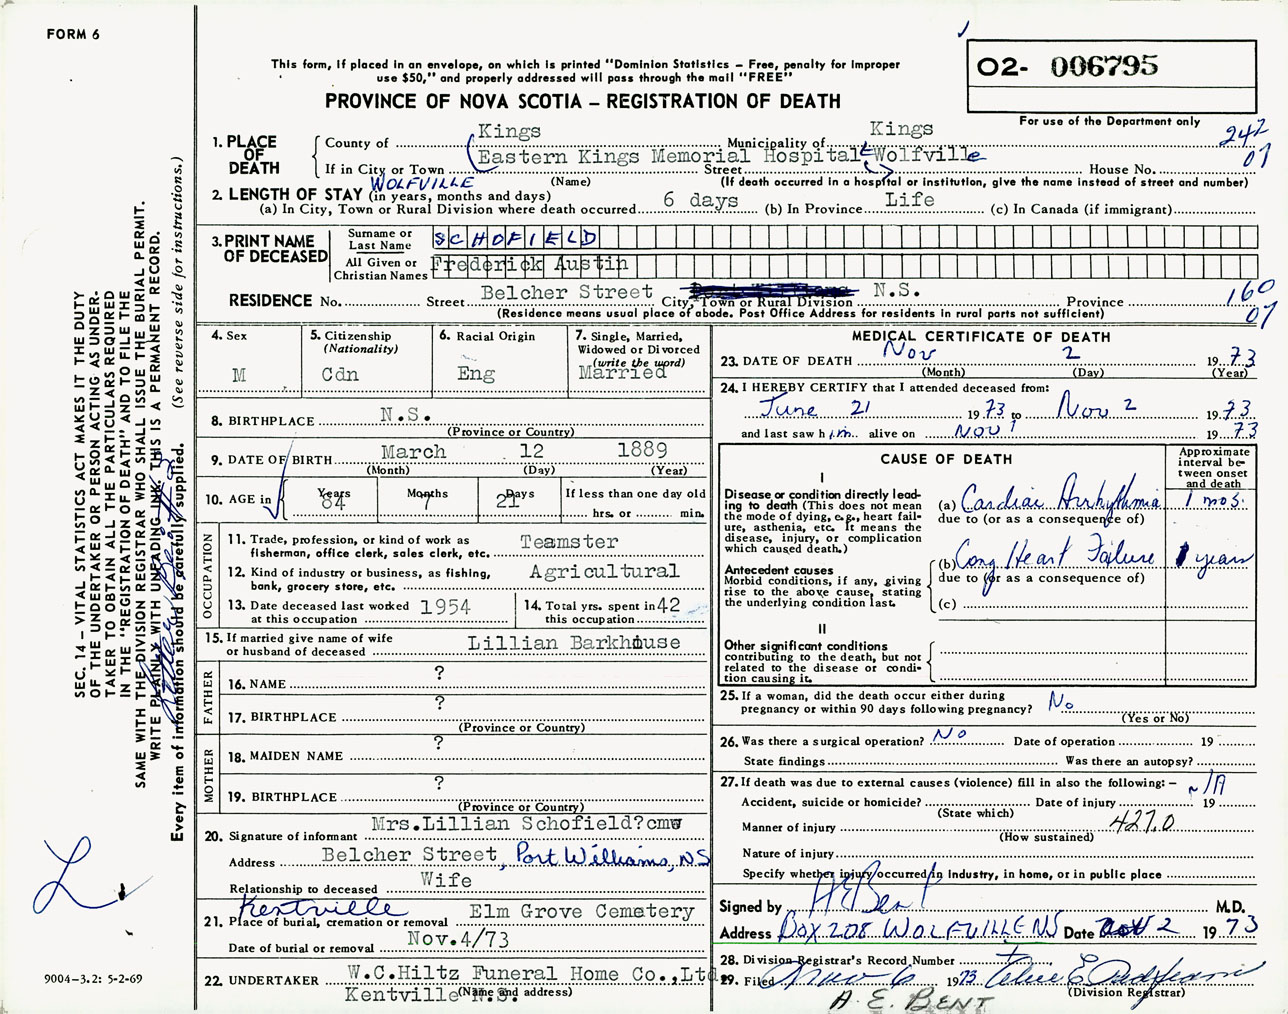 FORM 6
This form, if placed in an envelope, on which is printed "Dominion Statistics – Free, penalty for improper
use $50," and properly addressed will pass through the mail "FREE"
PROVINCE OF NOVA SCOTIA – REGISTRATION OF DEATH
O2- 006795
For use of the Department only
242
07
1. PLACE OF DEATH
County of Kings Municipality of Kings
Eastern Kings Memorial Hospital Wolfville
If in City or Town WOLFVILLE Street House No.
(Name) (If death occurred in a hospital or institution, give the name instead of street and number)
2. LENGTH OF STAY (in years, months and days)
(a) In City, Town or Rural Division where death occurred 6 days (b) In Province Life (c) In Canada (if immigrant)
3. PRINT NAME OF DECEASED
Surname or Last Name SCHOFIELD
All Given or Christian Names Frederick Austin
RESIDENCE No. Street Belcher Street City, Town or Rural Division N.S. Province
(Residence means usual place of abode. Post Office Address for residents in rural parts not sufficient)
160
07
4. Sex
M
5. Citizenship
(Nationality)
Cdn
6. Racial Origin
Eng
7. Single, Married,
Widowed or Divorced
(write the word)
Married
8. BIRTHPLACE N.S.
(Province or Country)
9. DATE OF BIRTH March 12 1889
(Month) (Day) (Year)
10. AGE in Years 84 Months 7 Days 21 If less than one day old
hrs. or min.
OCCUPATION
11. Trade, profession, or kind of work as
fisherman, office clerk, sales clerk, etc. Teamster
12. Kind of industry or business, as fishing,
bank, grocery store, etc. Agricultural
13. Date deceased last worked
at this occupation 1954
14. Total yrs. spent in
this occupation 42
15. If married give name of wife
or husband of deceased Lillian Barkhouse
FATHER
16. NAME ?
17. BIRTHPLACE ?
(Province or Country)
MOTHER
18. MAIDEN NAME ?
19. BIRTHPLACE ?
(Province or Country)
20. Signature of informant Mrs.Lillian Schofield?cmw
Address Belcher Street, Port Williams, NS
Relationship to deceased Wife
21. Place of burial, cremation or removal Kentville Elm Grove Cemetery
Date of burial or removal Nov.4/73
22. UNDERTAKER W.C.Hiltz Funeral Home Co.,Ltd.
Kentville N.S.
(Name and address)
MEDICAL CERTIFICATE OF DEATH
23. DATE OF DEATH Nov 2 1973
(Month) (Day) (Year)
24. I HEREBY CERTIFY that I attended deceased from:
June 21 1973 to Nov 2 1973
and last saw him alive on Nov 1 1973
CAUSE OF DEATH
Approximate
interval be-
tween onset
and death
I
Disease or condition directly lead-
ing to death (This does not mean
the mode of dying, e.g., heart fail-
ure, asthenia, etc. It means the
disease, injury, or complication
which caused death.)
(a) Cardiac Arrhythmia 1 mos.
due to (or as a consequence of)
Antecedent causes
Morbid conditions, if any, giving
rise to the above cause, stating
the underlying condition last.
(b) Cong Heart Failure 1 years
due to (or as a consequence of)
(c)
II
Other significant conditions
contributing to the death, but not
related to the disease or condi-
tion causing it.
25. If a woman, did the death occur either during
pregnancy or within 90 days following pregnancy? No
(Yes or No)
26. Was there a surgical operation? No Date of operation 19
State findings Was there an autopsy?
27. If death was due to external causes (violence) fill in also the following: – N/A
Accident, suicide or homicide? Date of injury 19
(State which)
Manner of injury 427.0
(How sustained)
Nature of injury
Specify whether injury occurred in industry, in home, or in public place
Signed by A E Bent M.D.
Address Box 208 WOLFVILLE NS Date Nov 2 1973
28. Division Registrar's Record Number
29. Filed Nov 6 1973
(Division Registrar)
A. E. BENT
SEC. 14 – VITAL STATISTICS ACT MAKES IT THE DUTY
OF THE UNDERTAKER OR PERSON ACTING AS UNDER-
TAKER TO OBTAIN ALL THE PARTICULARS REQUIRED
IN THE "REGISTRATION OF DEATH" AND TO FILE THE
SAME WITH THE DIVISION REGISTRAR WHO SHALL ISSUE THE BURIAL PERMIT.
WRITE PLAINLY WITH UNFADING INK. THIS IS A PERMANENT RECORD.
Every item of information should be carefully supplied. (See reverse side for instructions.)
L
9004–3.2: 5-2-69